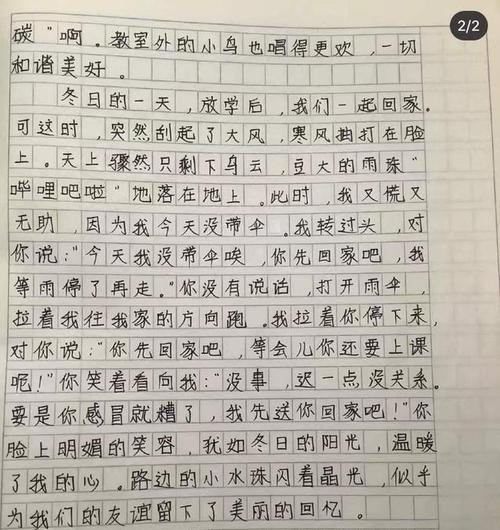 2/2
碳"啊。教室外的小鸟也唱得更欢,一切
和谐美好。
冬日的一天,放学后,我们一起回家。
可这时,突然刮起了大风,寒风拍打在脸
上。天上骤然只剩下乌云,豆大的雨珠"
哔哩吧啦"地落在地上。此时,我又慌又
无助,因为我今天没带伞。我转过头,对
你说:"今天我没带伞唉,你先回家吧,我
等雨停了再走。"你没有说话,打开雨伞,
拉着我往我家的方向跑。我拉着你停下来,
对你说:"你先回家吧,等会儿你还要上课
呢!"你笑着看向我:"没事,迟一点没关系。
要是你感冒就糟了,我先送你回家吧!"你
脸上明媚的笑容,犹如冬日的阳光,温暖
了我的心。路边的小水珠闪着晶光,似乎
为我们的友谊留下了美丽的回忆。